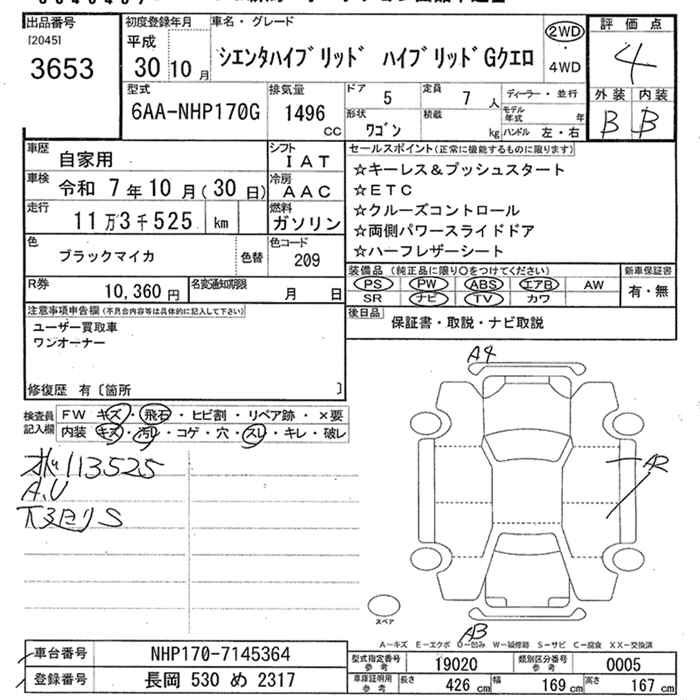 出品番号
[2045]
3653
初度登録年月
平成
30 10 月
車名・グレード
シエンタハイブリッド ハイブリッドGクエロ
2WD
・
4WD
評価点
4
外装 内装
B B
型式
6AA-NHP170G
排気量
1496
CC
ドア
5
定員
7 人
形状
ワゴン
積載
kg
ディーラー・並行
モデル年式 年
ハンドル 左・右
車歴
自家用
シフト
IAT
車検
令和 7年10月(30日)
冷房
AAC
走行
11万3千525 km
燃料
ガソリン
色
ブラックマイカ
色替
色コード
209
R券
10,360円
名変通知期限
月 日
セールスポイント(正常に機能するものに限ります)
☆キーレス&プッシュスタート
☆ETC
☆クルーズコントロール
☆両側パワースライドドア
☆ハーフレザーシート
装備品 (純正品に限り○をつけてください)
PS PW ABS エアB AW
SR ナビ TV カワ
新車保証書
有・無
後日品
保証書・取説・ナビ取説
注意事項申告欄(不具合内容等は具体的に記入して下さい)
ユーザー買取車
ワンオーナー
修復歴 有〔箇所 〕
検査員
記入欄
FW キズ・飛石・ヒビ割・リペア跡・×要
内装 キズ・汚れ・コゲ・穴・スレ・キレ・破レ
113525
A.U
A4
A2
スペア
A3
A-キズ E-エクボ U-凹み W-補修跡 S-サビ C-腐食 XX-交換済
車台番号
NHP170-7145364
登録番号
長岡 530 め 2317
型式指定番号
参考
19020
類別区分番号
参考
0005
車庫証明用
参考
長さ 426 cm 幅 169 cm 高さ 167 cm